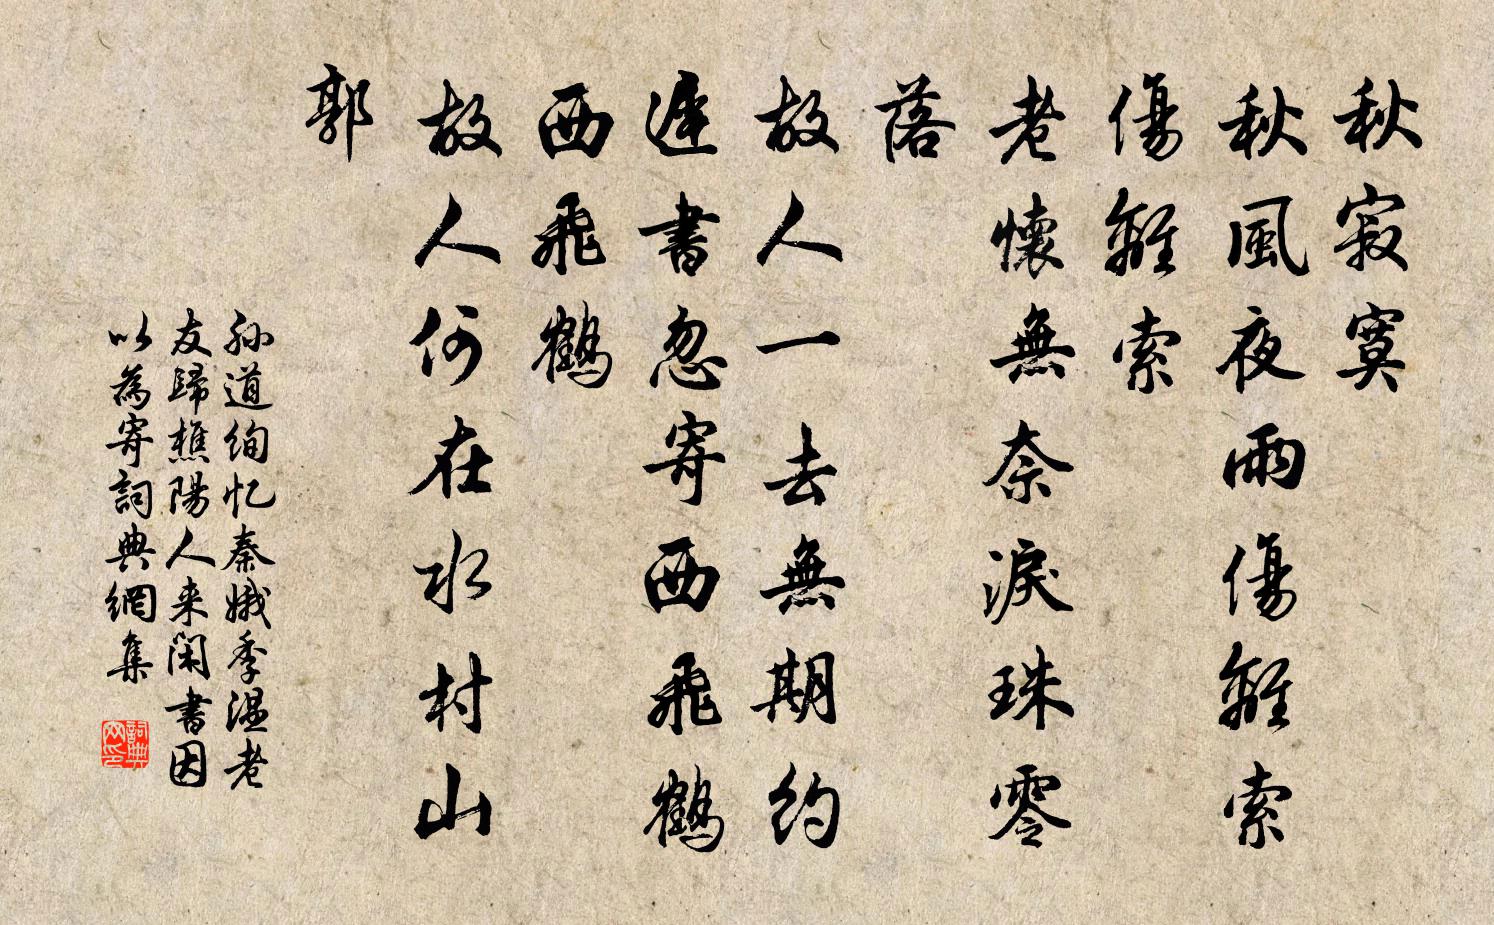 秋寂寞
秋風夜雨傷離索
傷離索
老懷無奈淚珠零
落
故人一去無期約
遲書忽寄西飛鶴
西飛鶴
故人何在水村山
郭
孙道絢忆秦娥季温老
友歸樵陽人来閑書因
以為寄詞典網集
詞典网印